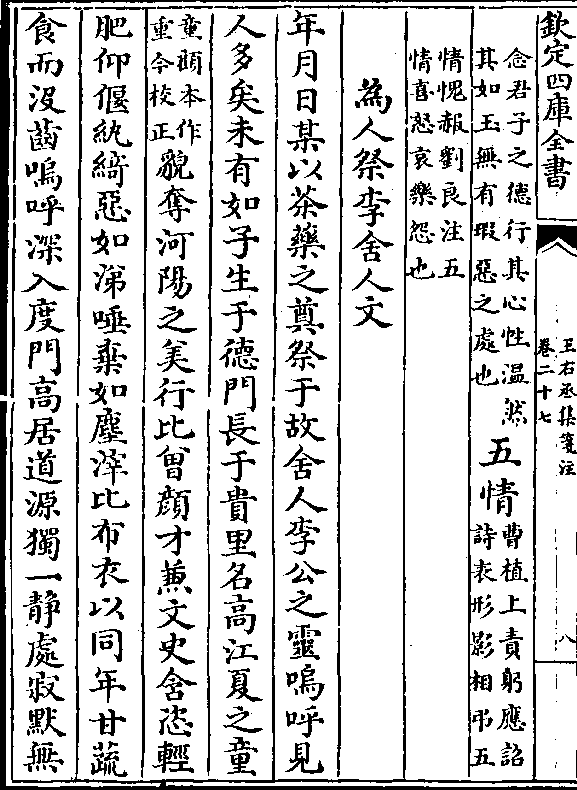 欽定四庫全書
王右丞集箋注
卷二十七
八
念君子之德行其心性温然
其如玉無有瑕惡之處也
五情
曹植上責躬應詔
詩表形影相弔五
情愧赧劉良注五
情喜怒哀樂怨也
為人祭李舍人文
年月日某以茶藥之奠祭于故舍人李公之靈嗚呼見
人多矣未有如子生于德門長于貴里名高江夏之童
童顧本作
重今校正
貌奪河陽之美行比曾顔才兼文史舍恣輕
肥仰偃紈綺惡如涕唾棄如塵滓比布衣以同年甘蔬
食而没齒嗚呼深入度門高居道源獨一静處寂默無